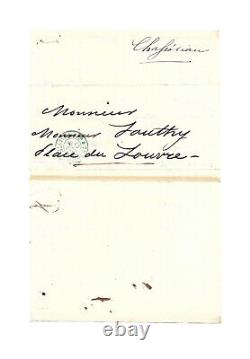 Chassériau
Monsieur
Monsieur Southy
Place du Louvre